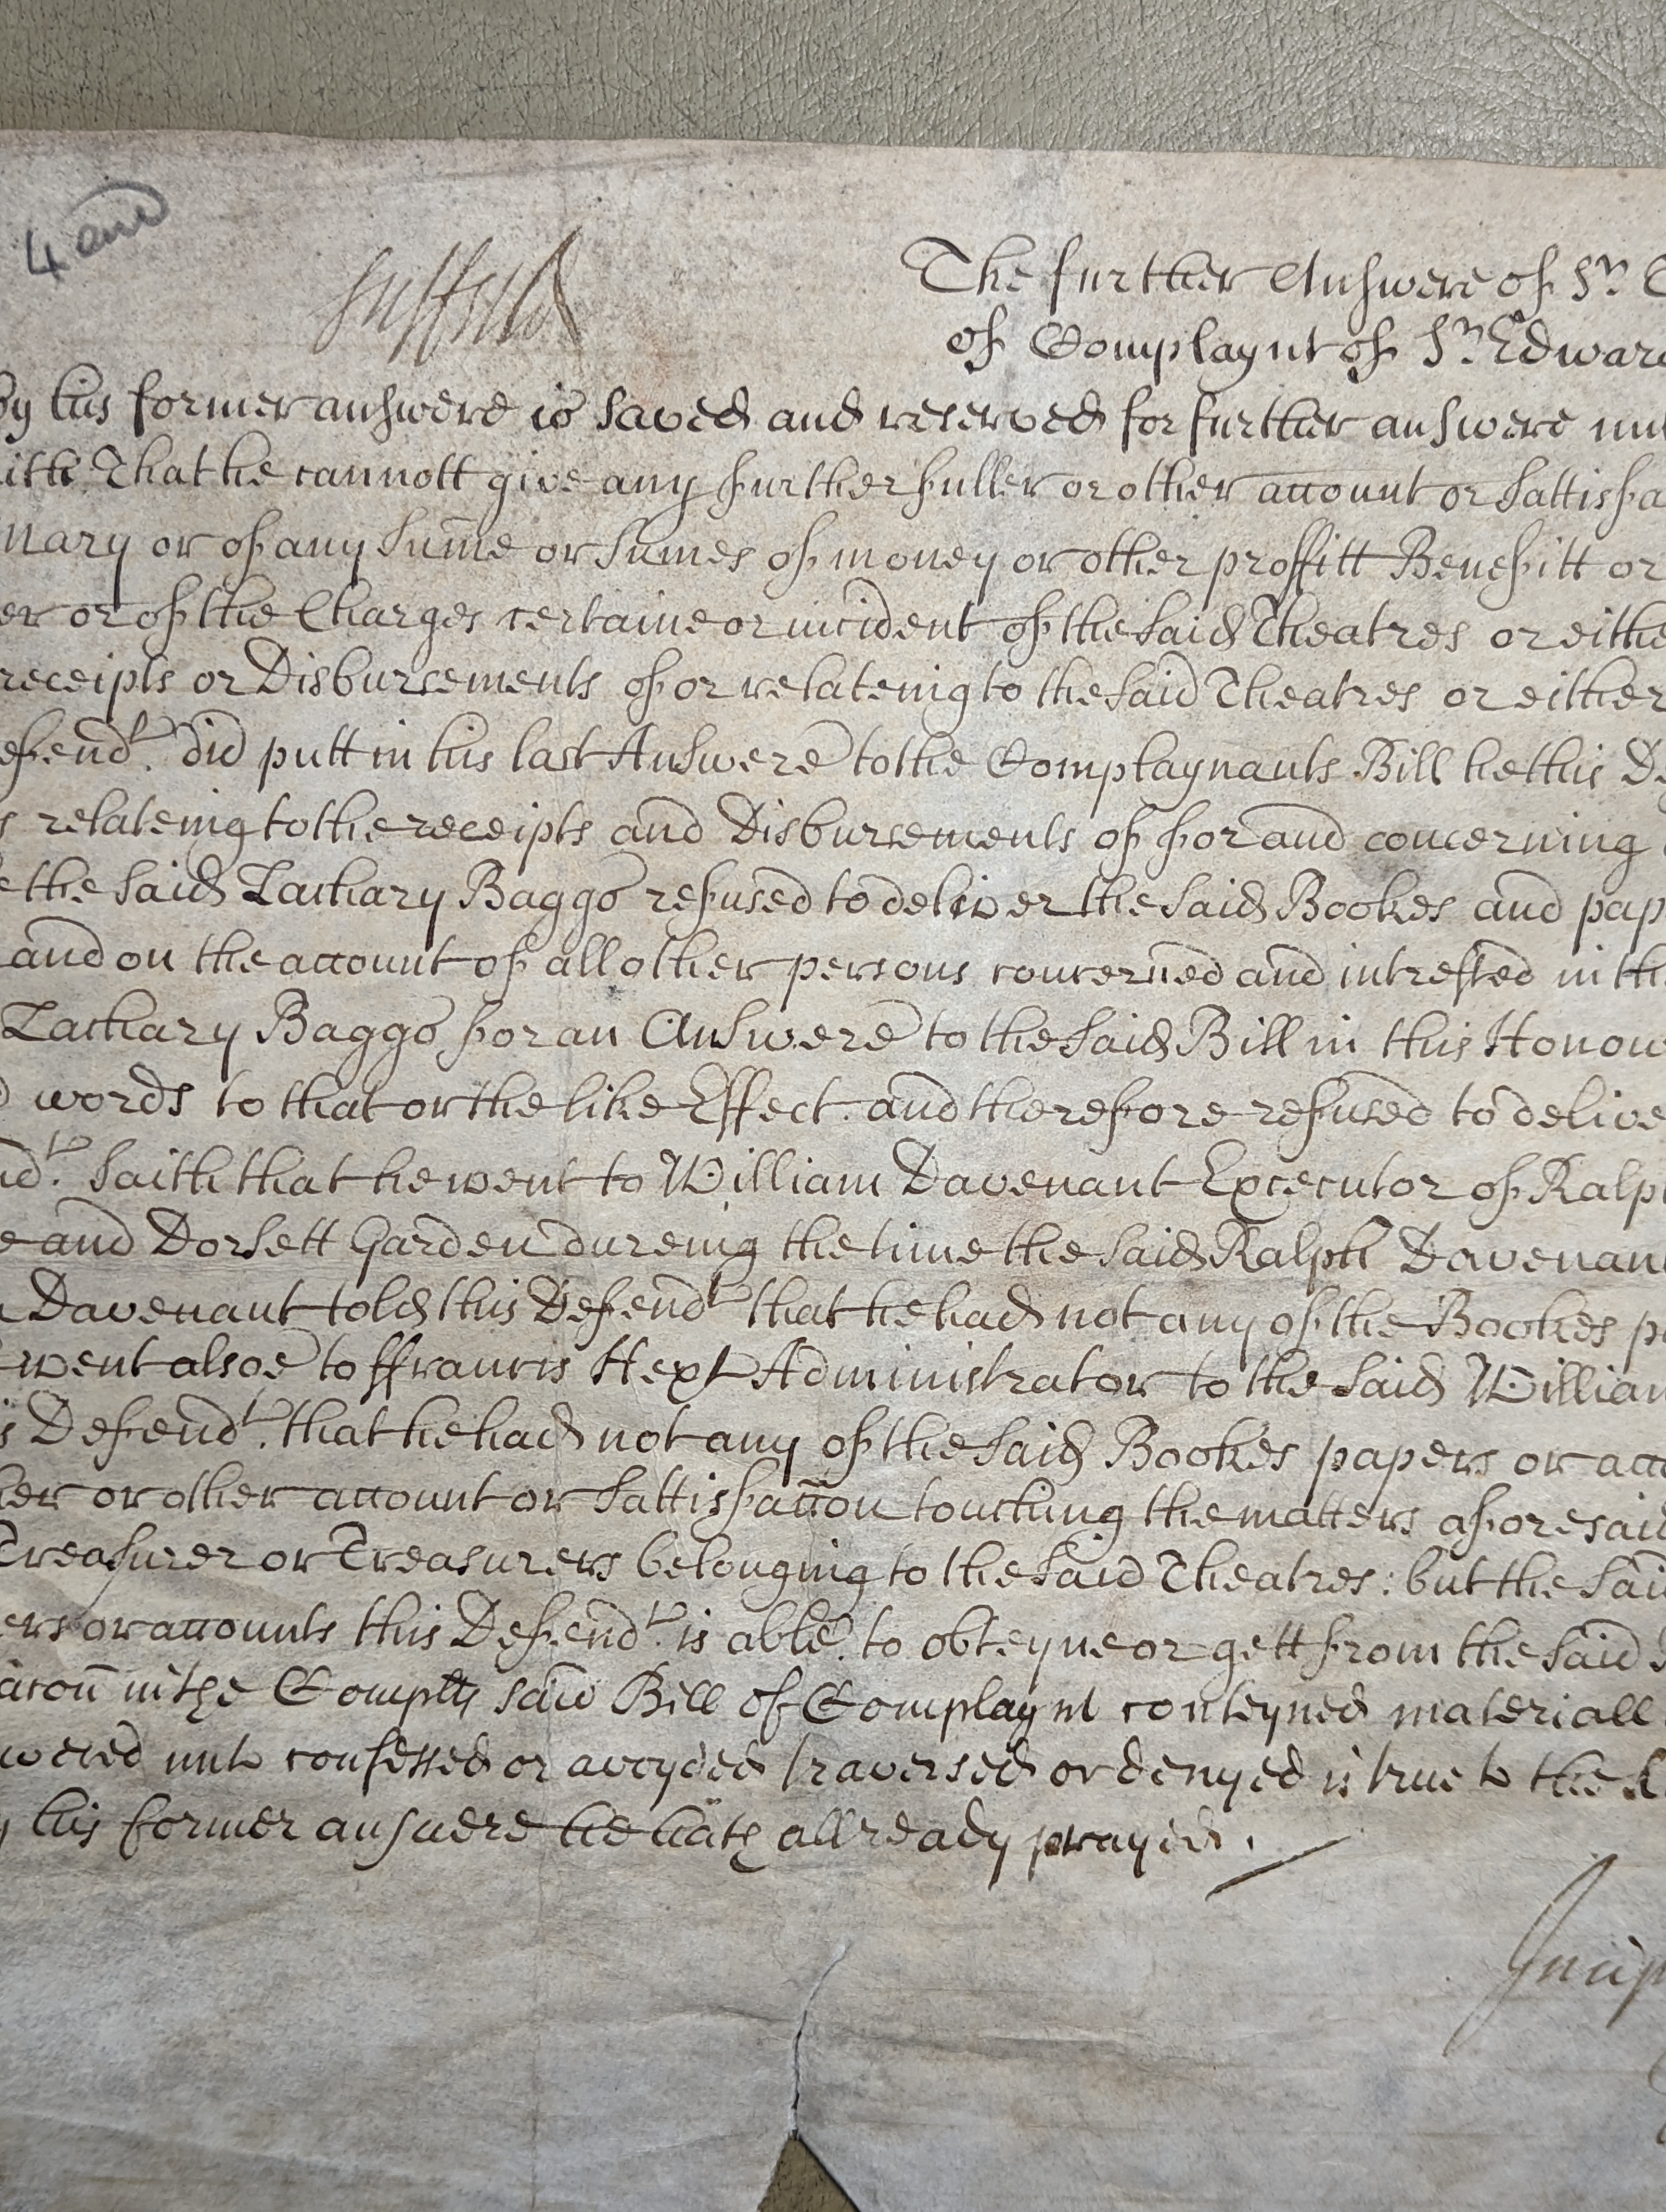 4
The further Answere of Sr.
of Complaynt of Sr. Edward
by his former answere is saved and reserved for further answere unt
ith That he cannott give any further fuller or other account or sattisfa
mary or of any Sum̄e or Sumes of money or other proffitt Benefitt or
er or of the Charges certaine or incident of the said Theatres or eithe
receipts or Disbursements of or relateing to the said Theatres or either
efendt. did putt in his last Answere to the Complaynants Bill he this De
s relateing to the receipts and Disbursements of for and concerning
e the said Zachary Baggs refused to deliver the said Bookes and pap
and on the account of all other persons concerned and intrested in th
Zachary Baggs for an Answere to the said Bill in this Honou
d words to that or the like Effect and therefore refused to delive
ndt. saith that he went to William Davenant Excecutor of Ralp
e and Dorsett Garden dureing the time the said Ralph Davenan
Davenant told this Defendt that he had not any of the Bookes p
went alsoe to ffrancis Hext Administrator to the said William
s Defendt. that he had not any of the said Bookes papers or acc
her or other account or sattisfac̄on touching the matters aforesaid
Treasurer or Treasurers belonging to the said Theatres: but the said
ers or accounts this Defendt. is able to obteyne or gett from the said
acon̄ in the Complts said Bill of Complaynt conteyned materiall
wered unto confessed or avoyded traversed or denyed is true to the
y his former answere he hath allready prayed.